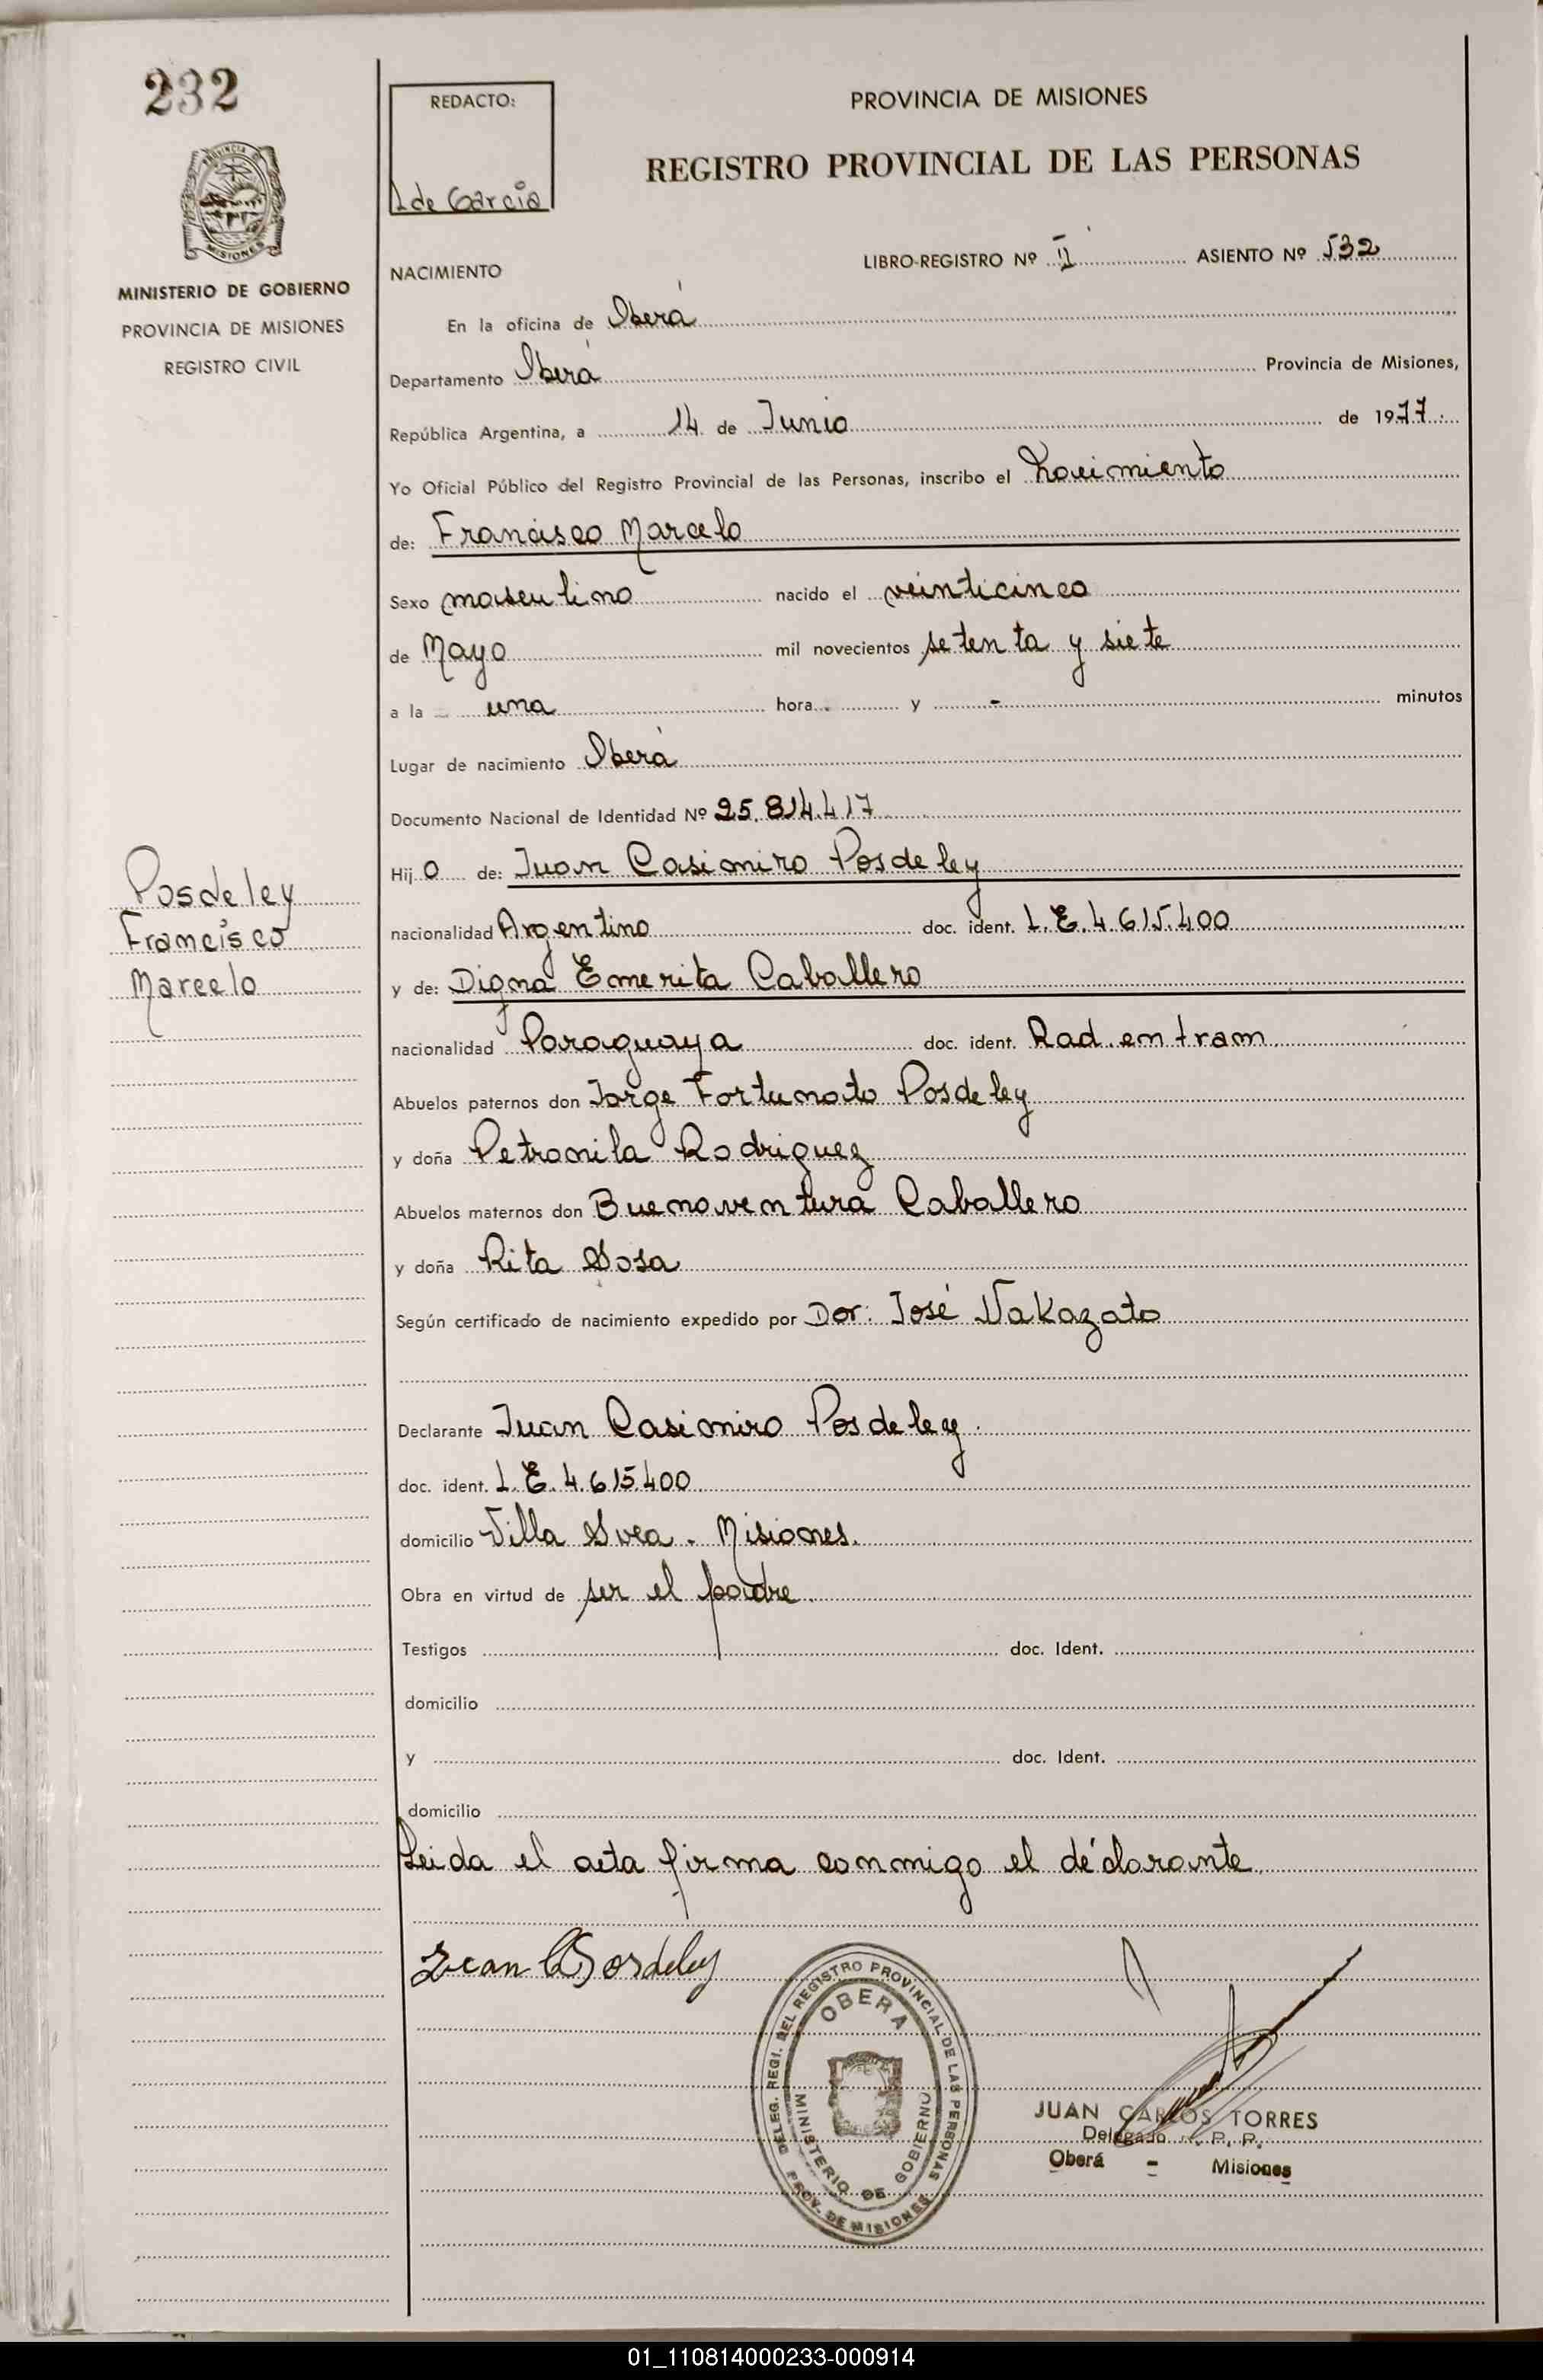 232
PROVINCIA DE MISIONES
MINISTERIO DE GOBIERNO
PROVINCIA DE MISIONES
REGISTRO CIVIL
REDACTO:
de Garcia
PROVINCIA DE MISIONES
REGISTRO PROVINCIAL DE LAS PERSONAS
NACIMIENTO
LIBRO-REGISTRO Nº II ASIENTO Nº 532
En la oficina de Oberá
Departamento Oberá Provincia de Misiones,
República Argentina, a 14 de Junio de 1977.
Yo Oficial Público del Registro Provincial de las Personas, inscribo el Nacimiento
de: Francisco Marcelo
Sexo masculino nacido el veinticinco
de Mayo mil novecientos setenta y siete
a la una hora y - minutos
Lugar de nacimiento Oberá
Documento Nacional de Identidad Nº 25.814.417
Hijo de: Juan Casimiro Posdeley
nacionalidad Argentino doc. ident. L.E. 4.615.400
y de: Digna Emerita Caballero
nacionalidad Paraguaya doc. ident. Rad. en tram
Abuelos paternos don Jorge Fortunato Posdeley
y doña Petronila Rodriguez
Abuelos maternos don Buenaventura Caballero
y doña Rita Sosa
Según certificado de nacimiento expedido por Dor. José Nakazato
Declarante Juan Casimiro Posdeley.
doc. ident. L.E. 4.615.400
domicilio Villa Svea. Misiones.
Obra en virtud de ser el padre.
Testigos doc. Ident.
domicilio
y doc. Ident.
domicilio
Leida el acta firma conmigo el declarante
Posdeley
Francisco
Marcelo
Juan C Posdeley
DELEG. REGI. DEL REGISTRO PROVINCIAL DE LAS PERSONAS
OBERA
MINISTERIO DE GOBIERNO
PROV. DE MISIONES
JUAN CARLOS TORRES
Delegado R. P. P.
Oberá - Misiones
01_110814000233-000914